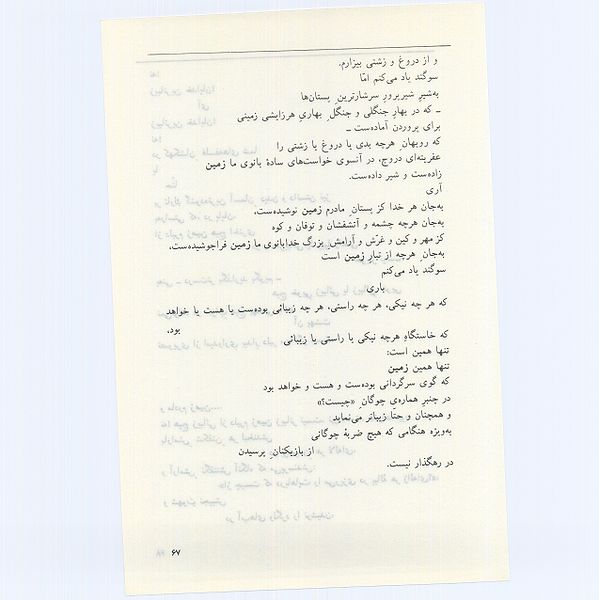 و از دروغ و زشتی بیزارم.
سوگند یاد می‌کنم امّا
به‌شیرِ شیرپرورِ سرشارترینِ پستان‌ها
ــ که در بهارِ جنگلی و جنگلِ بهاریِ هرزایشی زمینی
برای پروردن آماده‌ست ــ
که روپهانِ هرچه بدی یا دروغ یا زشتی را
عفریته‌ای دروج، در آنسوی خواست‌های سادهٔ بانوی ما زمین
زاده‌ست و شیر داده‌ست.
آری
به‌جان هر خدا کز پستانِ مادرم زمین نوشیده‌ست،
به‌جان هرچه چشمه و آتشفشان و توفان و کوه
کز مهر و کین و غرّش و آرامشِ بزرگ خدابانوی ما زمین فراجوشیده‌ست،
به‌جانِ هرچه از تبارِ زمین است
سوگند یاد می‌کنم
باری
که هر چه نیکی، هر چه راستی، هر چه زیبائی بوده‌ست یا هست یا خواهد
بود،
که خاستگاهِ هرچه نیکی یا راستی یا زیبائی
تنها همین است:
تنها همین زمین
که گوی سرگردانی بوده‌ست و هست و خواهد بود
در چنبرِ هماره‌یِ چوگانِ «چیست؟»
و همچنان و حتّا زیباتر می‌نماید
به‌ویژه هنگامی که هیچ ضربهٔ چوگانی
از بازیکنانِ پرسیدن
در رهگذار نیست.
۶۷